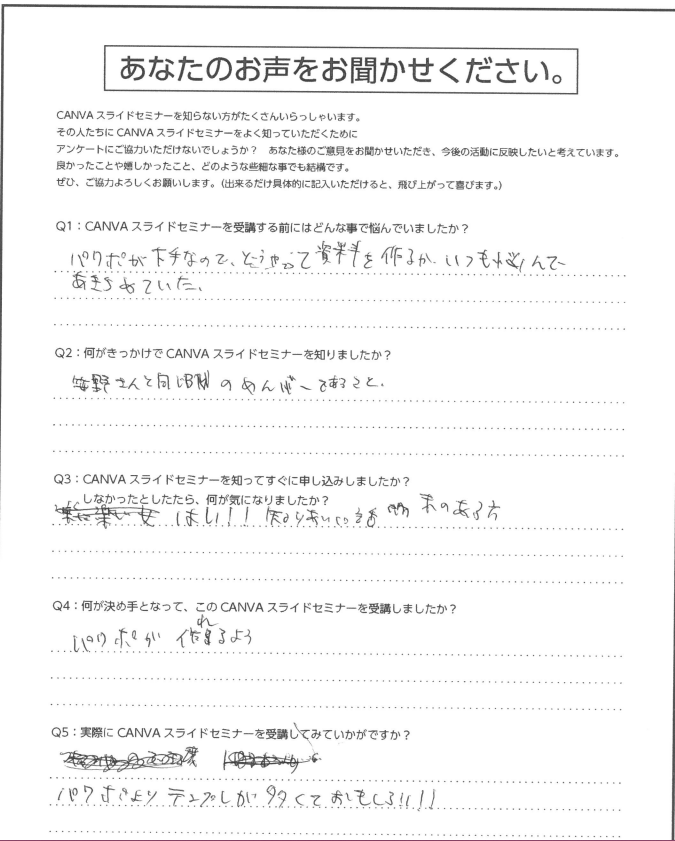 あなたのお声をお聞かせください。
CANVA スライドセミナーを知らない方がたくさんいらっしゃいます。
その人たちに CANVA スライドセミナーをよく知っていただくために
アンケートにご協力いただけないでしょうか？ あなた様のご意見をお聞かせいただき、今後の活動に反映したいと考えています。
良かったことや嬉しかったこと、どのような些細な事でも結構です。
ぜひ、ご協力よろしくお願いします。（出来るだけ具体的に記入いただけると、飛び上がって喜びます。）
Q1：CANVA スライドセミナーを受講する前にはどんな事で悩んでいましたか？
パワポが下手なので、どうやって資料を作るか いつも悩んで
あきらめていた、
Q2：何がきっかけで CANVA スライドセミナーを知りましたか？
笹野さんと同じ のめんばーであること、
Q3：CANVA スライドセミナーを知ってすぐに申し込みしましたか？
しなかったとしたたら、何が気になりましたか？
はい！！ 知り合い のある方
Q4：何が決め手となって、この CANVA スライドセミナーを受講しましたか？
パワポが 作れるよう
Q5：実際に CANVA スライドセミナーを受講してみていかがですか？
パワポより テンプレが 多くて おもしろい！！